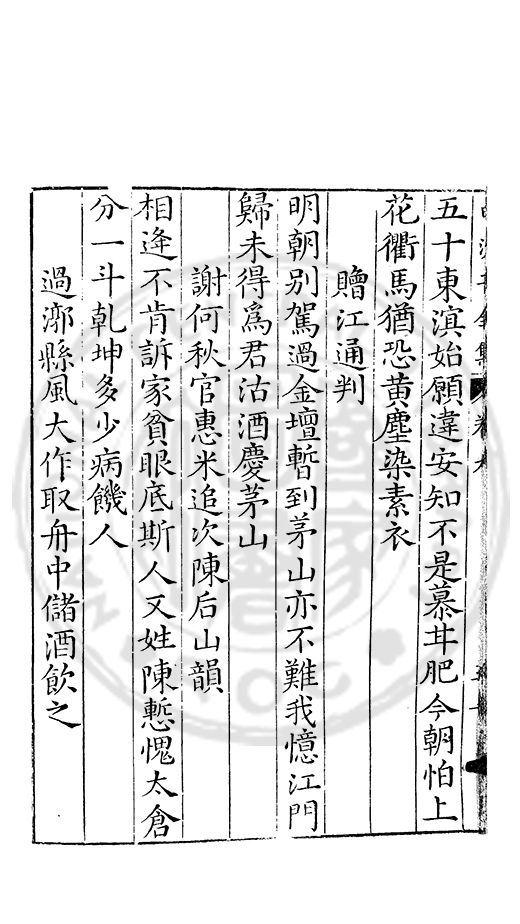 五十東滇始願違安知不是慕甘肥今朝怕上
花衢馬猶恐黄塵染素衣
贈江通判
明朝别駕過金壇暫到茅山亦不難我憶江門
歸未得爲君沽酒慶茅山
謝何秋官惠米追次陳后山韻
相逢不肯訴家貧眼底斯人又姓陳慙愧太倉
分一斗乾坤多少病饑人
過漷縣風大作取舟中儲酒飲之